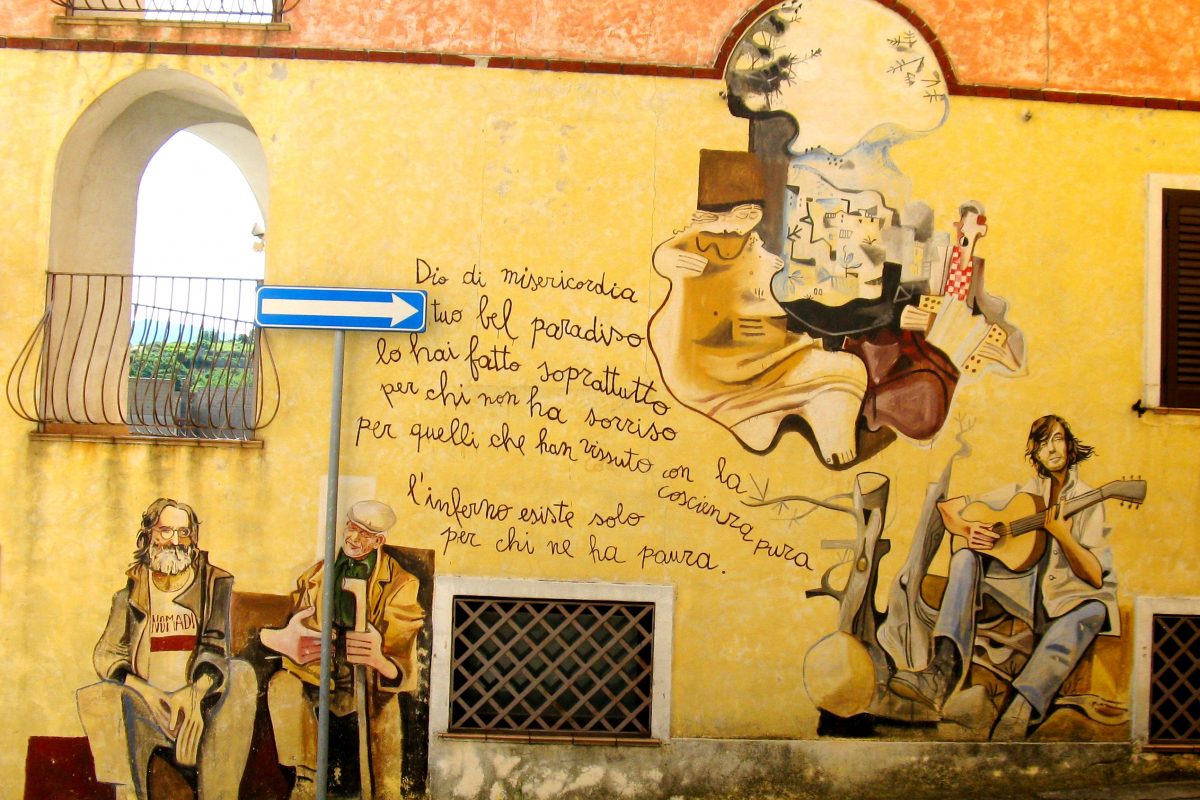 Dio di misericordia
tuo bel paradiso
lo hai fatto soprattutto
per chi non ha sorriso
per quelli che han vissuto con la
coscienza pura
l'inferno esiste solo
per chi ne ha paura.
NOMADI